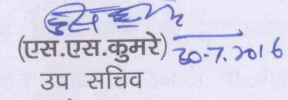 (एस.एस.कुमरे) 30-7.2016
उप सचिव